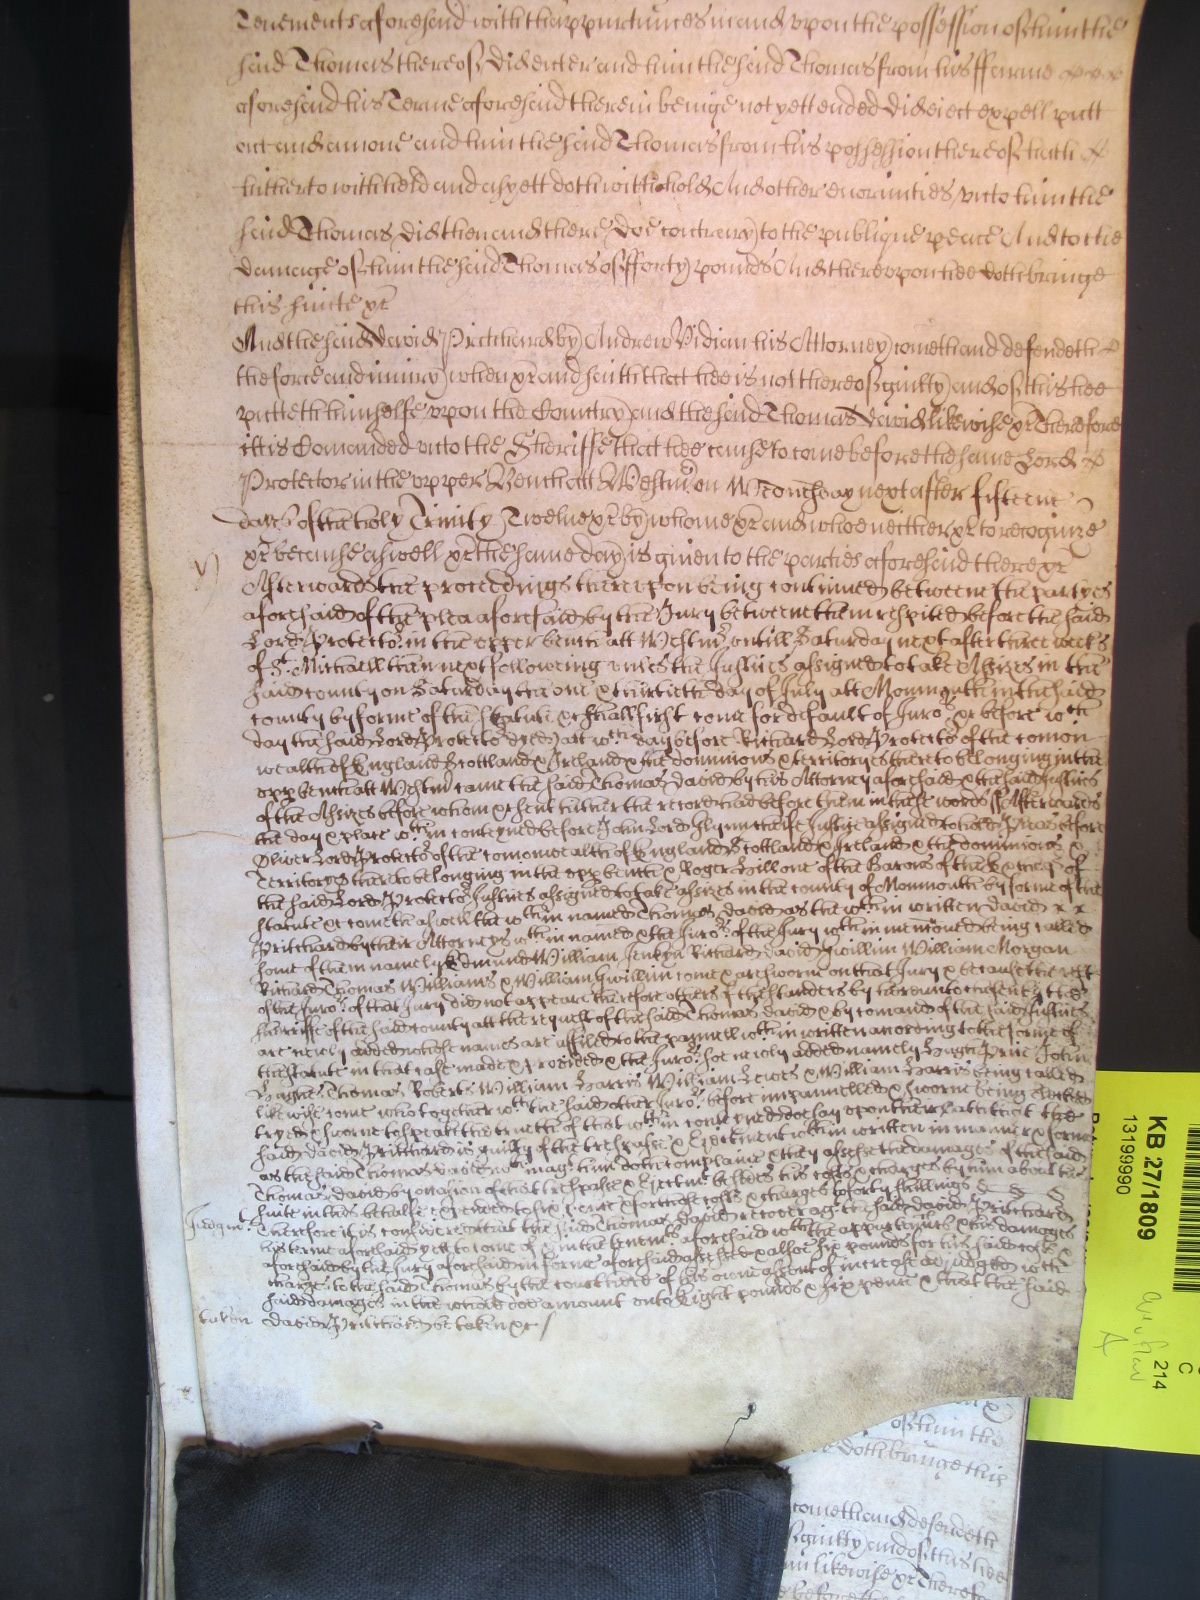 Tenements aforesaid with thappurtunces in and upon the possession of him the
said Thomas thereof did enter and him the said Thomas from his ffarme
aforesaid his Terme aforesaid therein beinge not yett ended did eiect expell putt
out and amove and him the said Thomas from his possession thereof hath
hitherto withheld and as yett doth withhold And other enormities unto him the
said Thomas did then and there doe contrary to the publique peace And to the
damage of him the said Thomas of fforty pounds And thereupon hee doth bringe
this suite &c
And the said David Pritchard by Andrew Vidian his Attorney cometh and defendeth
the force and iniury when &c and saith that hee is not thereof guilty and of this hee
putteth himselfe upon the Country and the said Thomas David likewise &c Therefore
itt is Comanded unto the Sheriffe that hee cause to come before the same Lord
Protector in the upper Bench att Westmr on Wednesday next after fifteene
dayes of the holy Trinity Twelve &c by whome &c and whoe neither &c to recognize
&c because aswell &c the same day is given to the parties aforesaid there &c
Afterwards the proceedings thereupon being continued betweene the partyes
aforesaid of the plea aforesaid by the Jury betweene them respited before the said
Lord Protector in the upper bench att Westmr untill Saturday next after three weeks
of St. Michaell then next following unles the Justices assigned to take Assizes in the
said county on Saturday the one & thirtieth day of July att Monmouth in the said
county by forme of the statute &c shall first come for default of Juros &c before wch
day the said Lord Protector dyed att wch day before Richard Lord Protector of the comon
wealth of England Scottland & Ireland & the dominions & territoryes thereto belonging in the
upp bench att Westmr came the said Thomas David by his Attorney aforesaid & the said Justices
of the Assizes before whom &c sent hither the record had before them in these words ss Afterwards
the day & place wthin conteyned before John Lord Glynn cheife Justice assigned to hold pleas before
Oliver Lord Protector of the comonwealth of England Scottland & Ireland & the dominions &
Territoryes thereto belonging in the upp bench & Roger Hill one of the Barons of the Exchequer of
the said Lord Protector Justices assigned to take assizes in the county of Monmouth by forme of the
statute &c cometh aswell the wthin named Thomas David as the wthin written David
Pritchard by their Attorneys wthin named & the Juros of the Jury wthin menconed being called
some of them namely Edmund William Jenkyn Richard David Gwillim William Morgan
Richard Thomas Williams & William Gwillim come & are sworne on that Jury & because the rest
of the Juros of that Jury did not appeare therefore others of the standers by hereunto chosen by the
sheriffe of the said county att the request of the said Thomas David & by comand of the said Justices
are newly added whose names are affiled to the pannell wthin written according to the forme of
the statute in that case made & provided & the Juros soe newly added namely Hugh Price John
Hughes Thomas Roberts William Harris William Lewes & William Harris being called
likewise come who together wth the said other Juros before impannelled & sworne being elected
tryed & sworne to speake the trueth of that wthin conteyned doe say upon their oathes that the
said David Pritchard is guilty of the trespasse & Ejectment wthin written in manner & forme
as the said Thomas David wthin against him doth complaine & they assesse the damages of the said
Thomas David by occasion of that trespasse & Ejectmt besides his costs & charges by him about his
suite in this behalfe expended to six pence & for those costs & charges to forty shillings
Judgmt. Therefore it is considered that the said Thomas David recover agt. the said David Pritchard
his terme aforesaid yett to come of & in the tenemts aforesaid wth the appurtenncs & his damages
aforesaid by the Jury aforesaid in forme aforesaid assessed & alsoe six pounds for his said costs &
charges to the said Thomas by the court here of his owne assent of increase adjudged wch
said damages in the whole doe amount unto Eight pounds & six pence & that the said
taken David Pritchard be taken &c /
KB 27/1809
13199990
C
214
of him the
doth bringe this
cometh and defendeth
guilty and of this hee
likewise &c Therefore